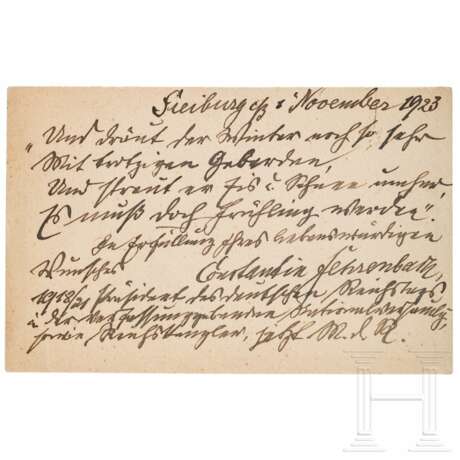 Freiburg 1 November 1923
"Und dräut der Winter noch so sehr
Mit trotzigen Geberden,
Und streut er Eis u. Schnee umher,
Es muß doch Frühling werden".
In Erfüllung Ihres liebenswürdigen
Wunsches Constantin Fehrenbach,
Präsident des deutschen Reichstags
u. der verfassunggebenden Nationalversamlg,
sowie Reichskanzler, jetzt M. d. R.